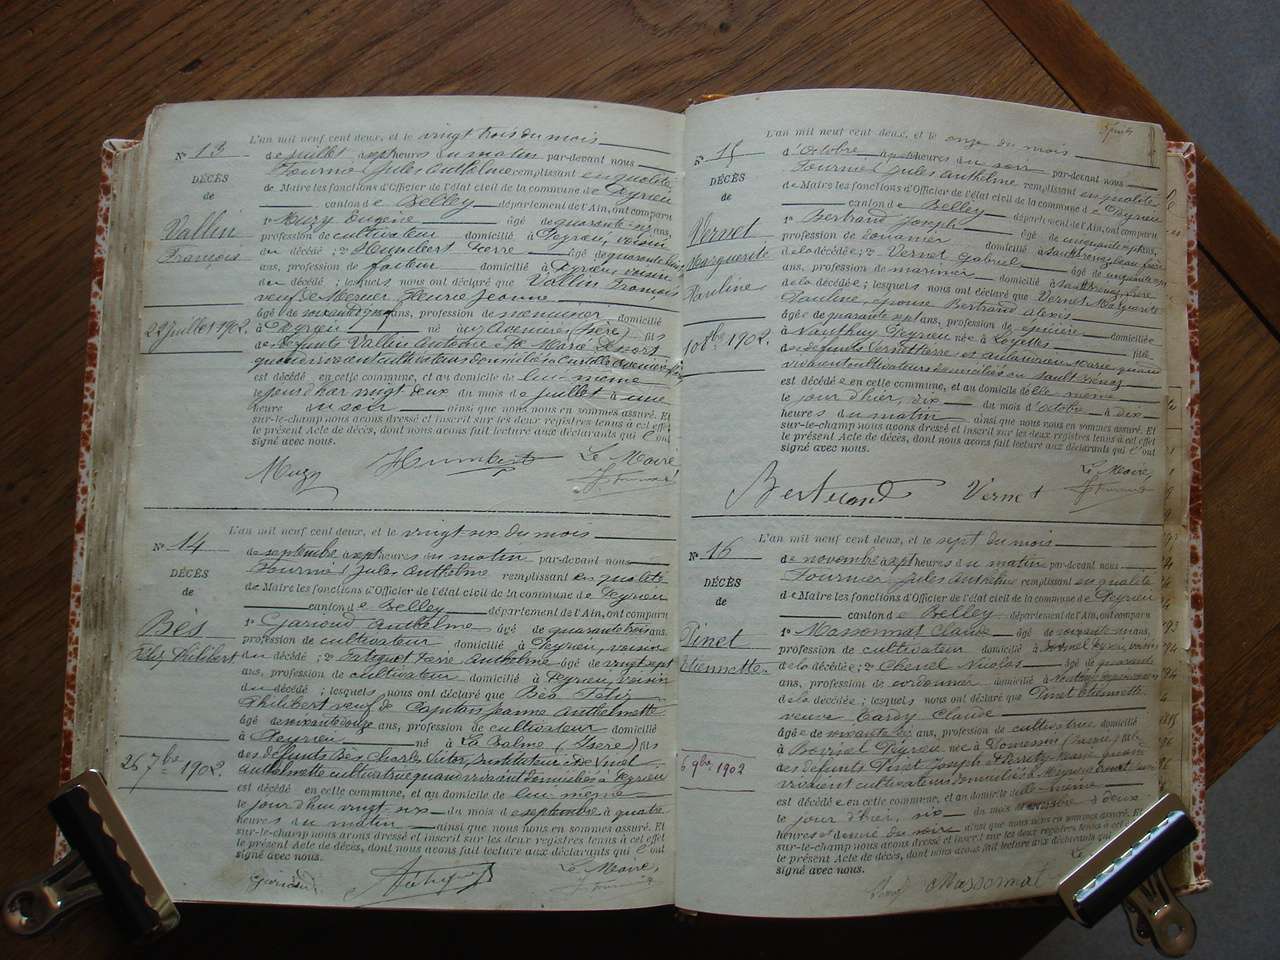 N° 13
DÉCÈS
de
Vallin
François
22 juillet 1902.
L'an mil neuf cent deux, et le vingt trois du mois
de juillet à sept heures du matin par-devant nous
Fournier Jules Anthelme remplissant en qualité
de Maire les fonctions d'Officier de l'état civil de la commune de Peyrieu
canton de Belley département de l'Ain, ont comparu
1° Muzy Eugène âgé de quarante ans,
profession de cultivateur domicilié à Peyrieu, voisin
du décédé ; 2° Humbert Pierre âgé de quarante
ans, profession de facteur domicilié à Peyrieu, voisin
du décédé ; lesquels nous ont déclaré que Vallin François
veuf de Mercier Fleurie Jeanne
âgé de soixante ans, profession de menuisier domicilié
à Peyrieu né aux Avenières (Isère) fils
de défunts Vallin Antoine et de Marie
quand vivaient cultivateurs domiciliés
est décédé en cette commune, et au domicile de lui même
le jour d'hier vingt deux du mois de juillet à une
heure du soir ainsi que nous nous en sommes assuré. Et
sur-le-champ nous avons dressé et inscrit sur les deux registres tenus à cet effet
le présent Acte de décès, dont nous avons fait lecture aux déclarants qui l'ont
signé avec nous.
Muzy Humbert Le Maire,
Fournier
N° 14
DÉCÈS
de
Bès
Félix Philibert
26 7bre 1902.
L'an mil neuf cent deux, et le vingt six du mois
de septembre à sept heures du matin par-devant nous
Fournier Jules Anthelme remplissant en qualité
de Maire les fonctions d'Officier de l'état civil de la commune de Peyrieu
canton de Belley département de l'Ain, ont comparu
1° Garioud Anthelme âgé de quarante trois ans,
profession de cultivateur domicilié à Peyrieu, voisin
du décédé ; 2° Pierre Anthelme âgé de vingt sept
ans, profession de cultivateur domicilié à Peyrieu, voisin
du décédé ; lesquels nous ont déclaré que Bès Félix
Philibert veuf de Capitan Jeanne Anthelmette
âgé de soixante douze ans, profession de cultivateur domicilié
à Peyrieu né à La Balme (Isère) fils
des défunts Bès Charles Victor, instituteur et de
Anthelmette cultivatrice quand vivaient domiciliés à Peyrieu
est décédé en cette commune, et au domicile de lui-même
le jour d'hui vingt six du mois de septembre à quatre
heures du matin ainsi que nous nous en sommes assuré. Et
sur-le-champ nous avons dressé et inscrit sur les deux registres tenus à cet effet
le présent Acte de décès, dont nous avons fait lecture aux déclarants qui l'ont
signé avec nous.
Garioud Le Maire,
Fournier
N° 15
DÉCÈS
de
Vernet
Marguerite
Pauline
10 8bre 1902.
L'an mil neuf cent deux, et le onze du mois
d'Octobre à sept heures du soir par-devant nous
Fournier Jules Anthelme remplissant en qualité
de Maire les fonctions d'Officier de l'état civil de la commune de Peyrieu
canton de Belley département de l'Ain, ont comparu
1° Bertrand Joseph âgé de cinquante sept ans,
profession de douanier domicilié à
de la décédée ; 2° Vernet Gabriel âgé de cinquante
ans, profession de marinier domicilié à
de la décédée ; lesquels nous ont déclaré que Vernet Marguerite
Pauline, épouse Bertrand Alexis
âgée de quarante sept ans, profession de épicière domiciliée
à Nanthuy Peyrieu née à Loyettes fille
des défunts Vernet Pierre et Marie quand
vivaient cultivateurs domiciliés à Sault
est décédée en cette commune, et au domicile de elle même
le jour d'hier, dix du mois d'octobre à dix
heures du matin ainsi que nous nous en sommes assuré. Et
sur-le-champ nous avons dressé et inscrit sur les deux registres tenus à cet effet
le présent Acte de décès, dont nous avons fait lecture aux déclarants qui l'ont
signé avec nous.
Bertrand Vernet Le Maire,
Fournier
N° 16
DÉCÈS
de
Pinet
Etiennette
6 9bre 1902
L'an mil neuf cent deux, et le sept du mois
de novembre à sept heures du matin par-devant nous
Fournier Jules Anthelme remplissant en qualité
de Maire les fonctions d'Officier de l'état civil de la commune de Peyrieu
canton de Belley département de l'Ain, ont comparu
1° Massonnat Claude âgé de soixante ans,
profession de cultivateur domicilié à Peyrieu, voisin
de la décédée ; 2° Chenel Nicolas âgé de quarante
ans, profession de cordonnier domicilié à
de la décédée ; lesquels nous ont déclaré que Pinet Etiennette
veuve Tardy Claude
âgée de soixante ans, profession de cultivatrice domicilié
à Peyrieu née à fille
des défunts Pinet Joseph et quand
vivaient cultivateurs domiciliés à
est décédée en cette commune, et au domicile de elle-même
le jour d'hier, six du mois de novembre à deux
heures et demie du soir ainsi que nous nous en sommes assuré. Et
sur-le-champ nous avons dressé et inscrit sur les deux registres tenus à cet effet
le présent Acte de décès, dont nous avons fait lecture aux déclarants qui l'ont
signé avec nous.
Massonnat Le